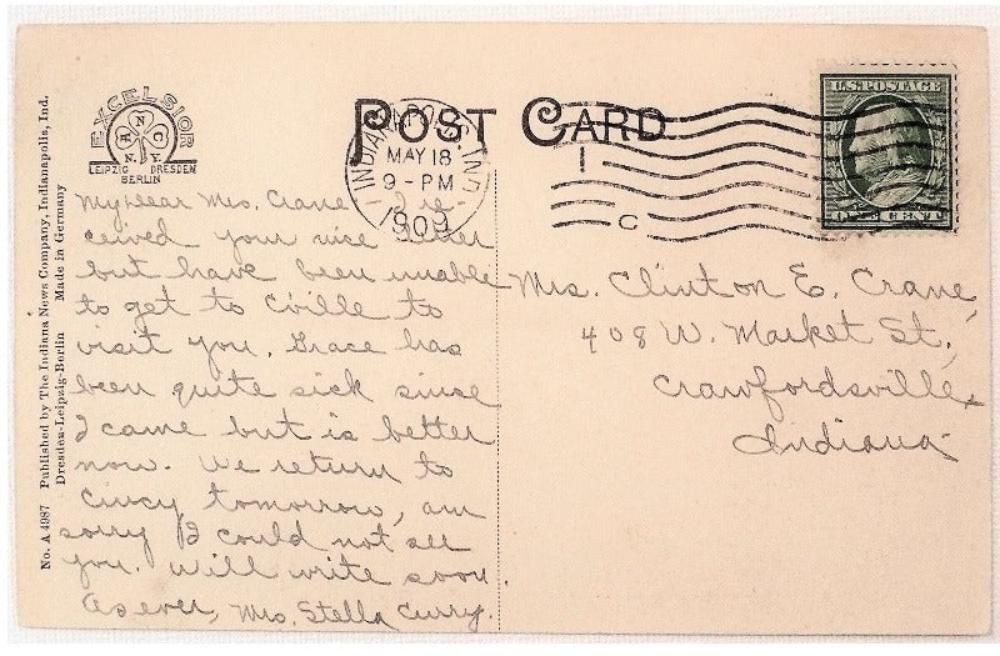 No. A 4987 Published by The Indiana News Company, Indianapolis, Ind.
Dresden-Leipzig-Berlin Made in Germany
EXCELSIOR
A N C
N.Y.
LEIPZIG DRESDEN
BERLIN
POST CARD
INDIANAPOLIS, IND.
MAY 18
9 - PM
1909
1
C
U.S. POSTAGE
ONE CENT
My dear Mrs. Crane - I re-
ceived your nice letter
but have been unable
to get to C'ville to
visit you. Grace has
been quite sick since
I came but is better
now. We return to
Cincy tomorrow, am
sorry I could not see
you. Will write soon.
As ever, Mrs. Stella Curry.
Mrs. Clinton E. Crane,
408 W. Market St.,
Crawfordsville,
Indiana